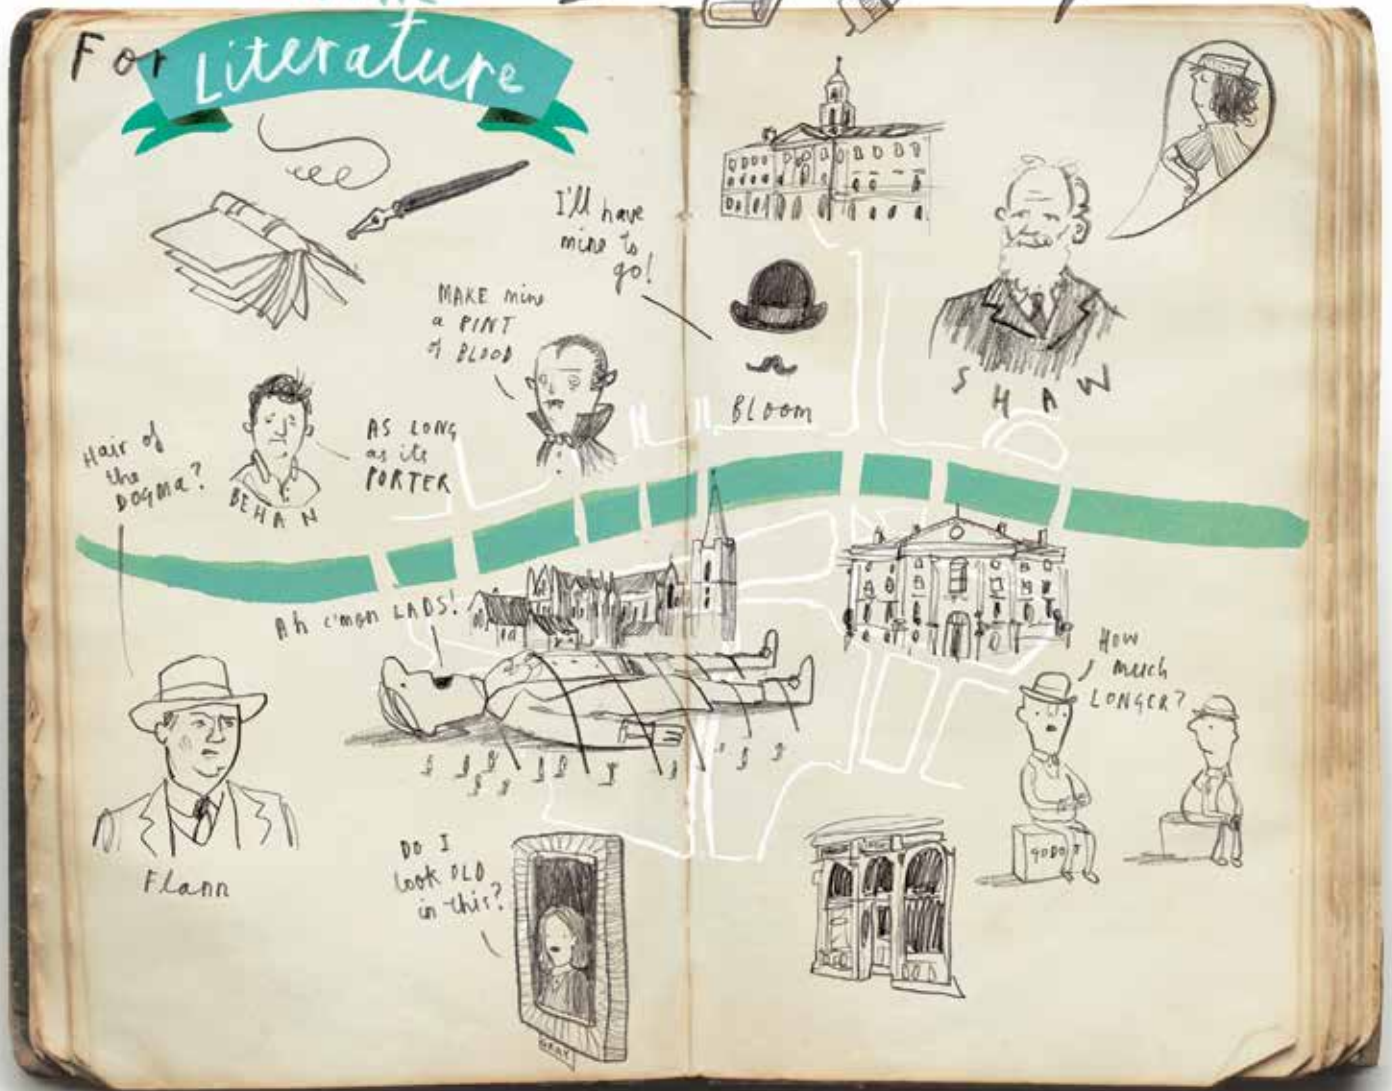 For Literature
I'll have
mine to
go!
MAKE mine
a PINT
of BLOOD
BLOOM
SHAW
Hair of
the
DOGMa?
BEHAN
AS LONG
as its
PORTER
Ah c'mon LADS!
HOW
much
LONGER?
GODOT
Flann
DO I
look OLD
in this?
GRAY